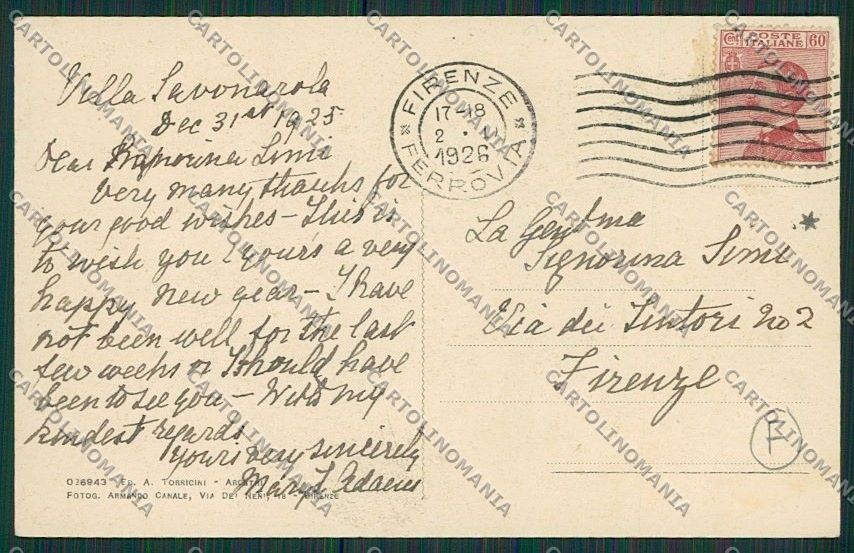 Villa Savonarola
Dec 31st 1925
Dear Signorina Simi
Very many thanks for
your good wishes – This is
to wish you & yours a very
happy new year – I have
not been well for the last
few weeks or I should have
been to see you – With my
kindest regards
Yours very sincerely
Mary L Adams
026943 Ed. A. Torricini -
Fotog. Armando Canale, Via Dei Neri, 18 - Firenze
FIRENZE
17-18
2
1926
FERROVIA
Cent. POSTE ITALIANE 60
La Gentma
Signorina Simi
Via dei Tintori No 2
Firenze
CARTOLINOMANIA